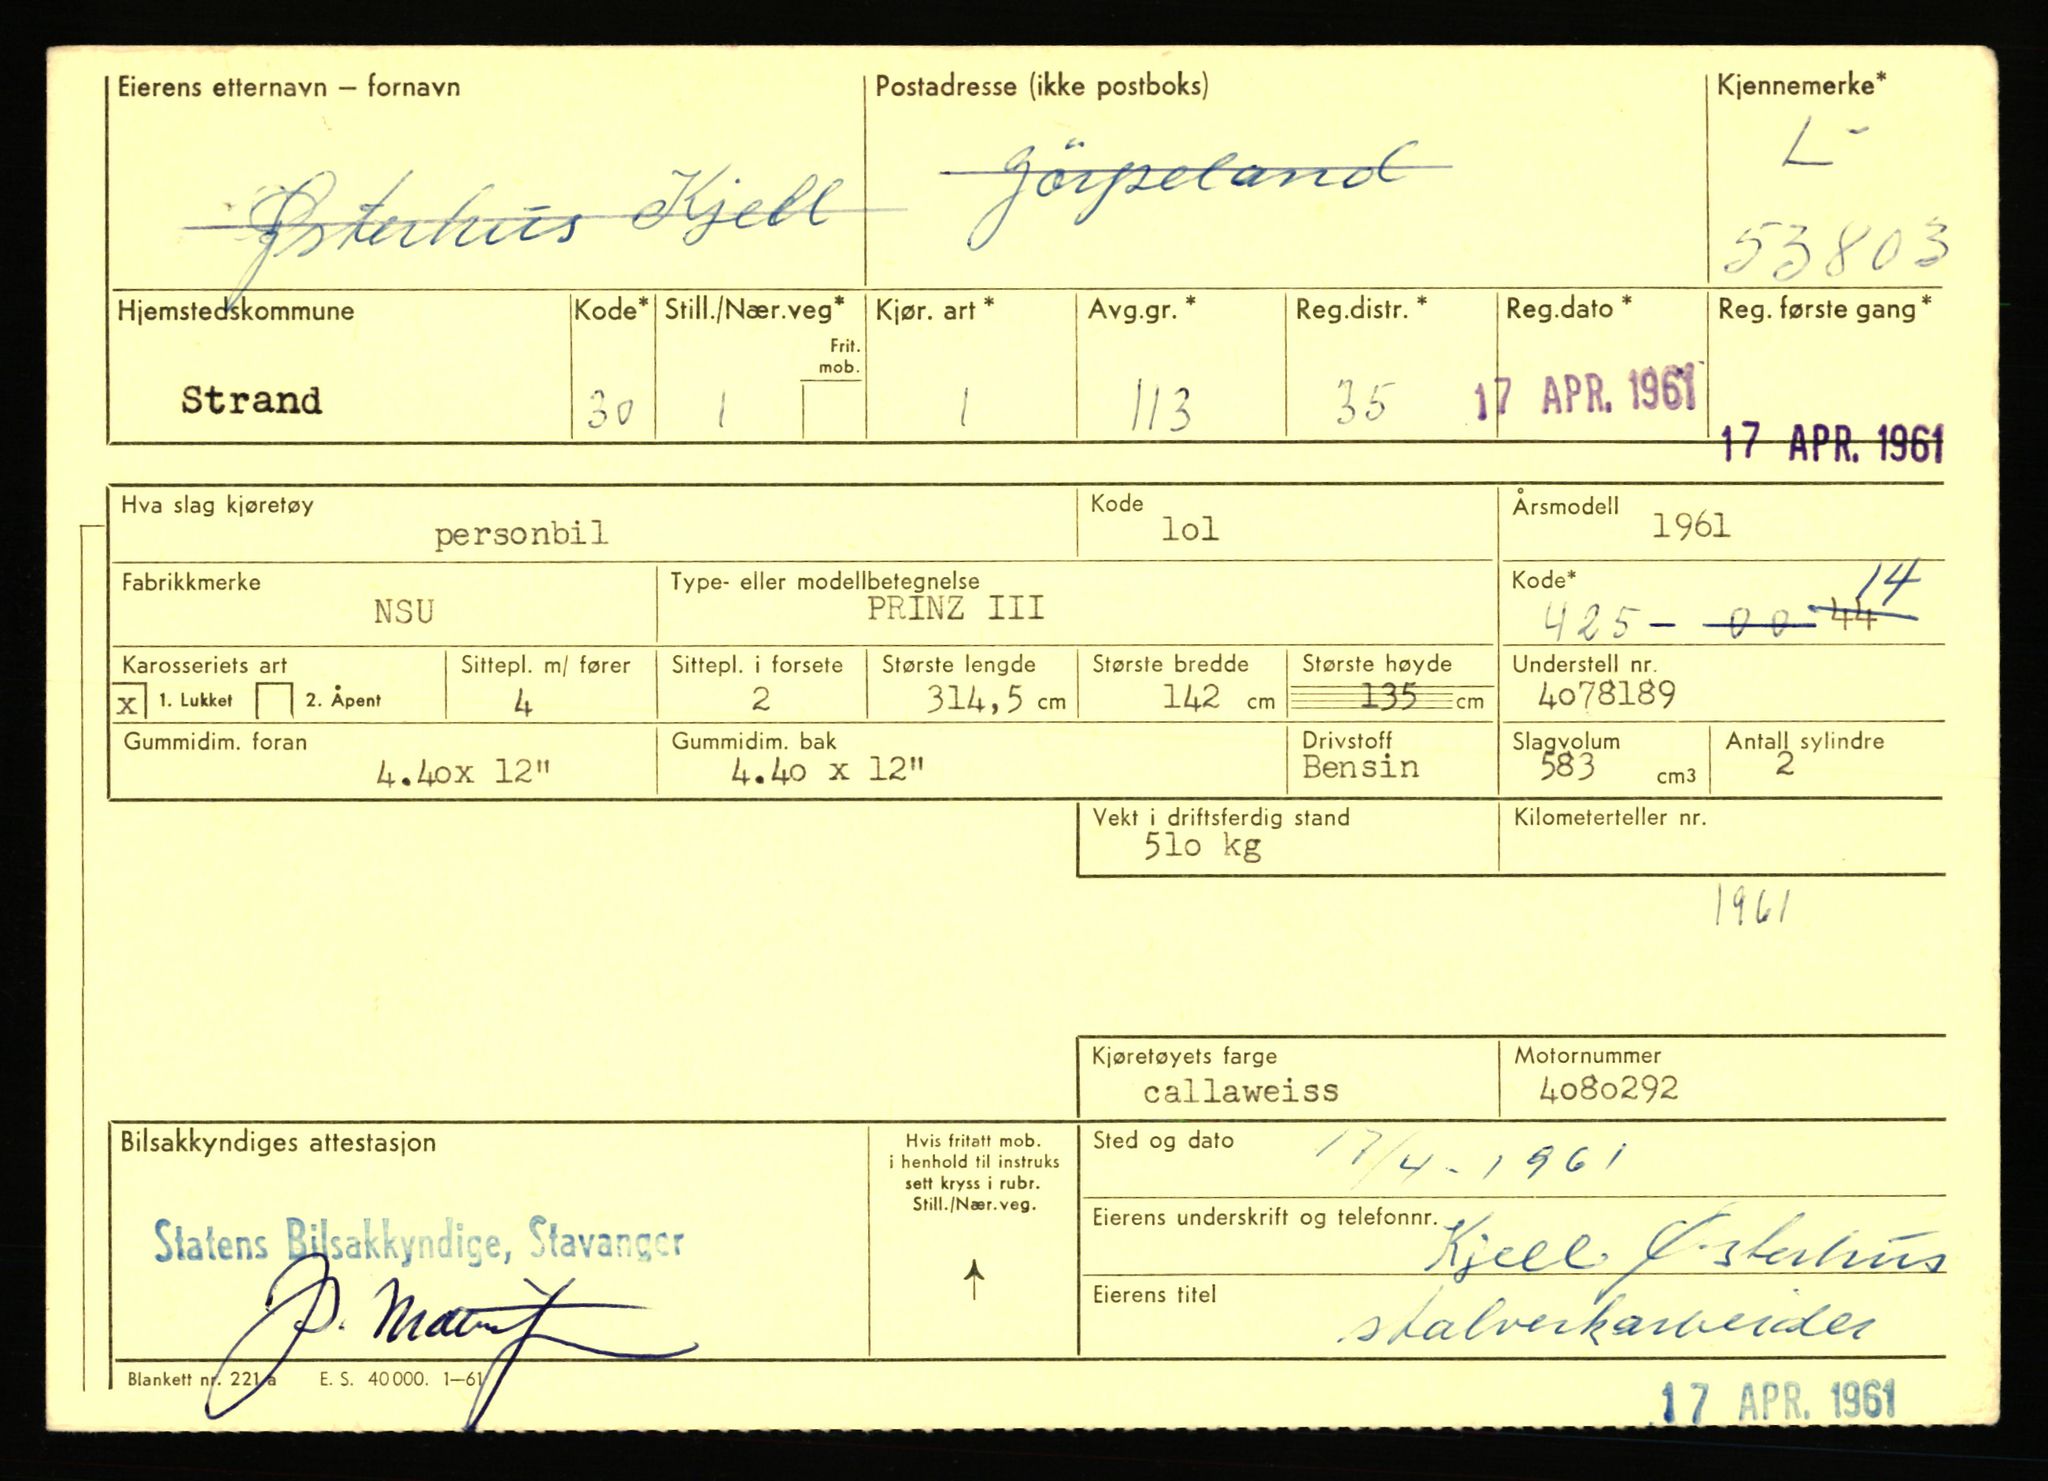 Eierens etternavn – fornavn Postadresse (ikke postboks) Kjennemerke*
Østerhus Kjell Jörpeland L-
53803
Hjemstedskommune Kode* Still./Nær.veg* Kjør. art* Avg.gr.* Reg.distr.* Reg.dato* Reg. første gang*
Frit.
mob.
Strand 30 1 1 113 35 17 APR. 1961
17 APR. 1961
Hva slag kjøretøy Kode Årsmodell
personbil lol 1961
Fabrikkmerke Type- eller modellbetegnelse Kode* 14
NSU PRINZ III 425 - 00 44
Karosseriets art Sittepl. m/ fører Sittepl. i forsete Største lengde Største bredde Største høyde Understell nr.
x 1. Lukket 2. Åpent 4 2 314,5 cm 142 cm 135 cm 4078189
Gummidim. foran Gummidim. bak Drivstoff Slagvolum Antall sylindre
4.40x 12" 4.40 x 12" Bensin 583 cm3 2
Vekt i driftsferdig stand Kilometerteller nr.
5lo kg
1961
Kjøretøyets farge Motornummer
callaweiss 4080292
Bilsakkyndiges attestasjon Hvis fritatt mob. Sted og dato 17/4-1961
i henhold til instruks
sett kryss i rubr.
Still./Nær.veg.
Statens Bilsakkyndige, Stavanger Eierens underskrift og telefonnr. Kjell Østerhus
Eierens titel stalverkarbeider
Blankett nr. 221 a E. S. 40 000. 1–61
17 APR. 1961